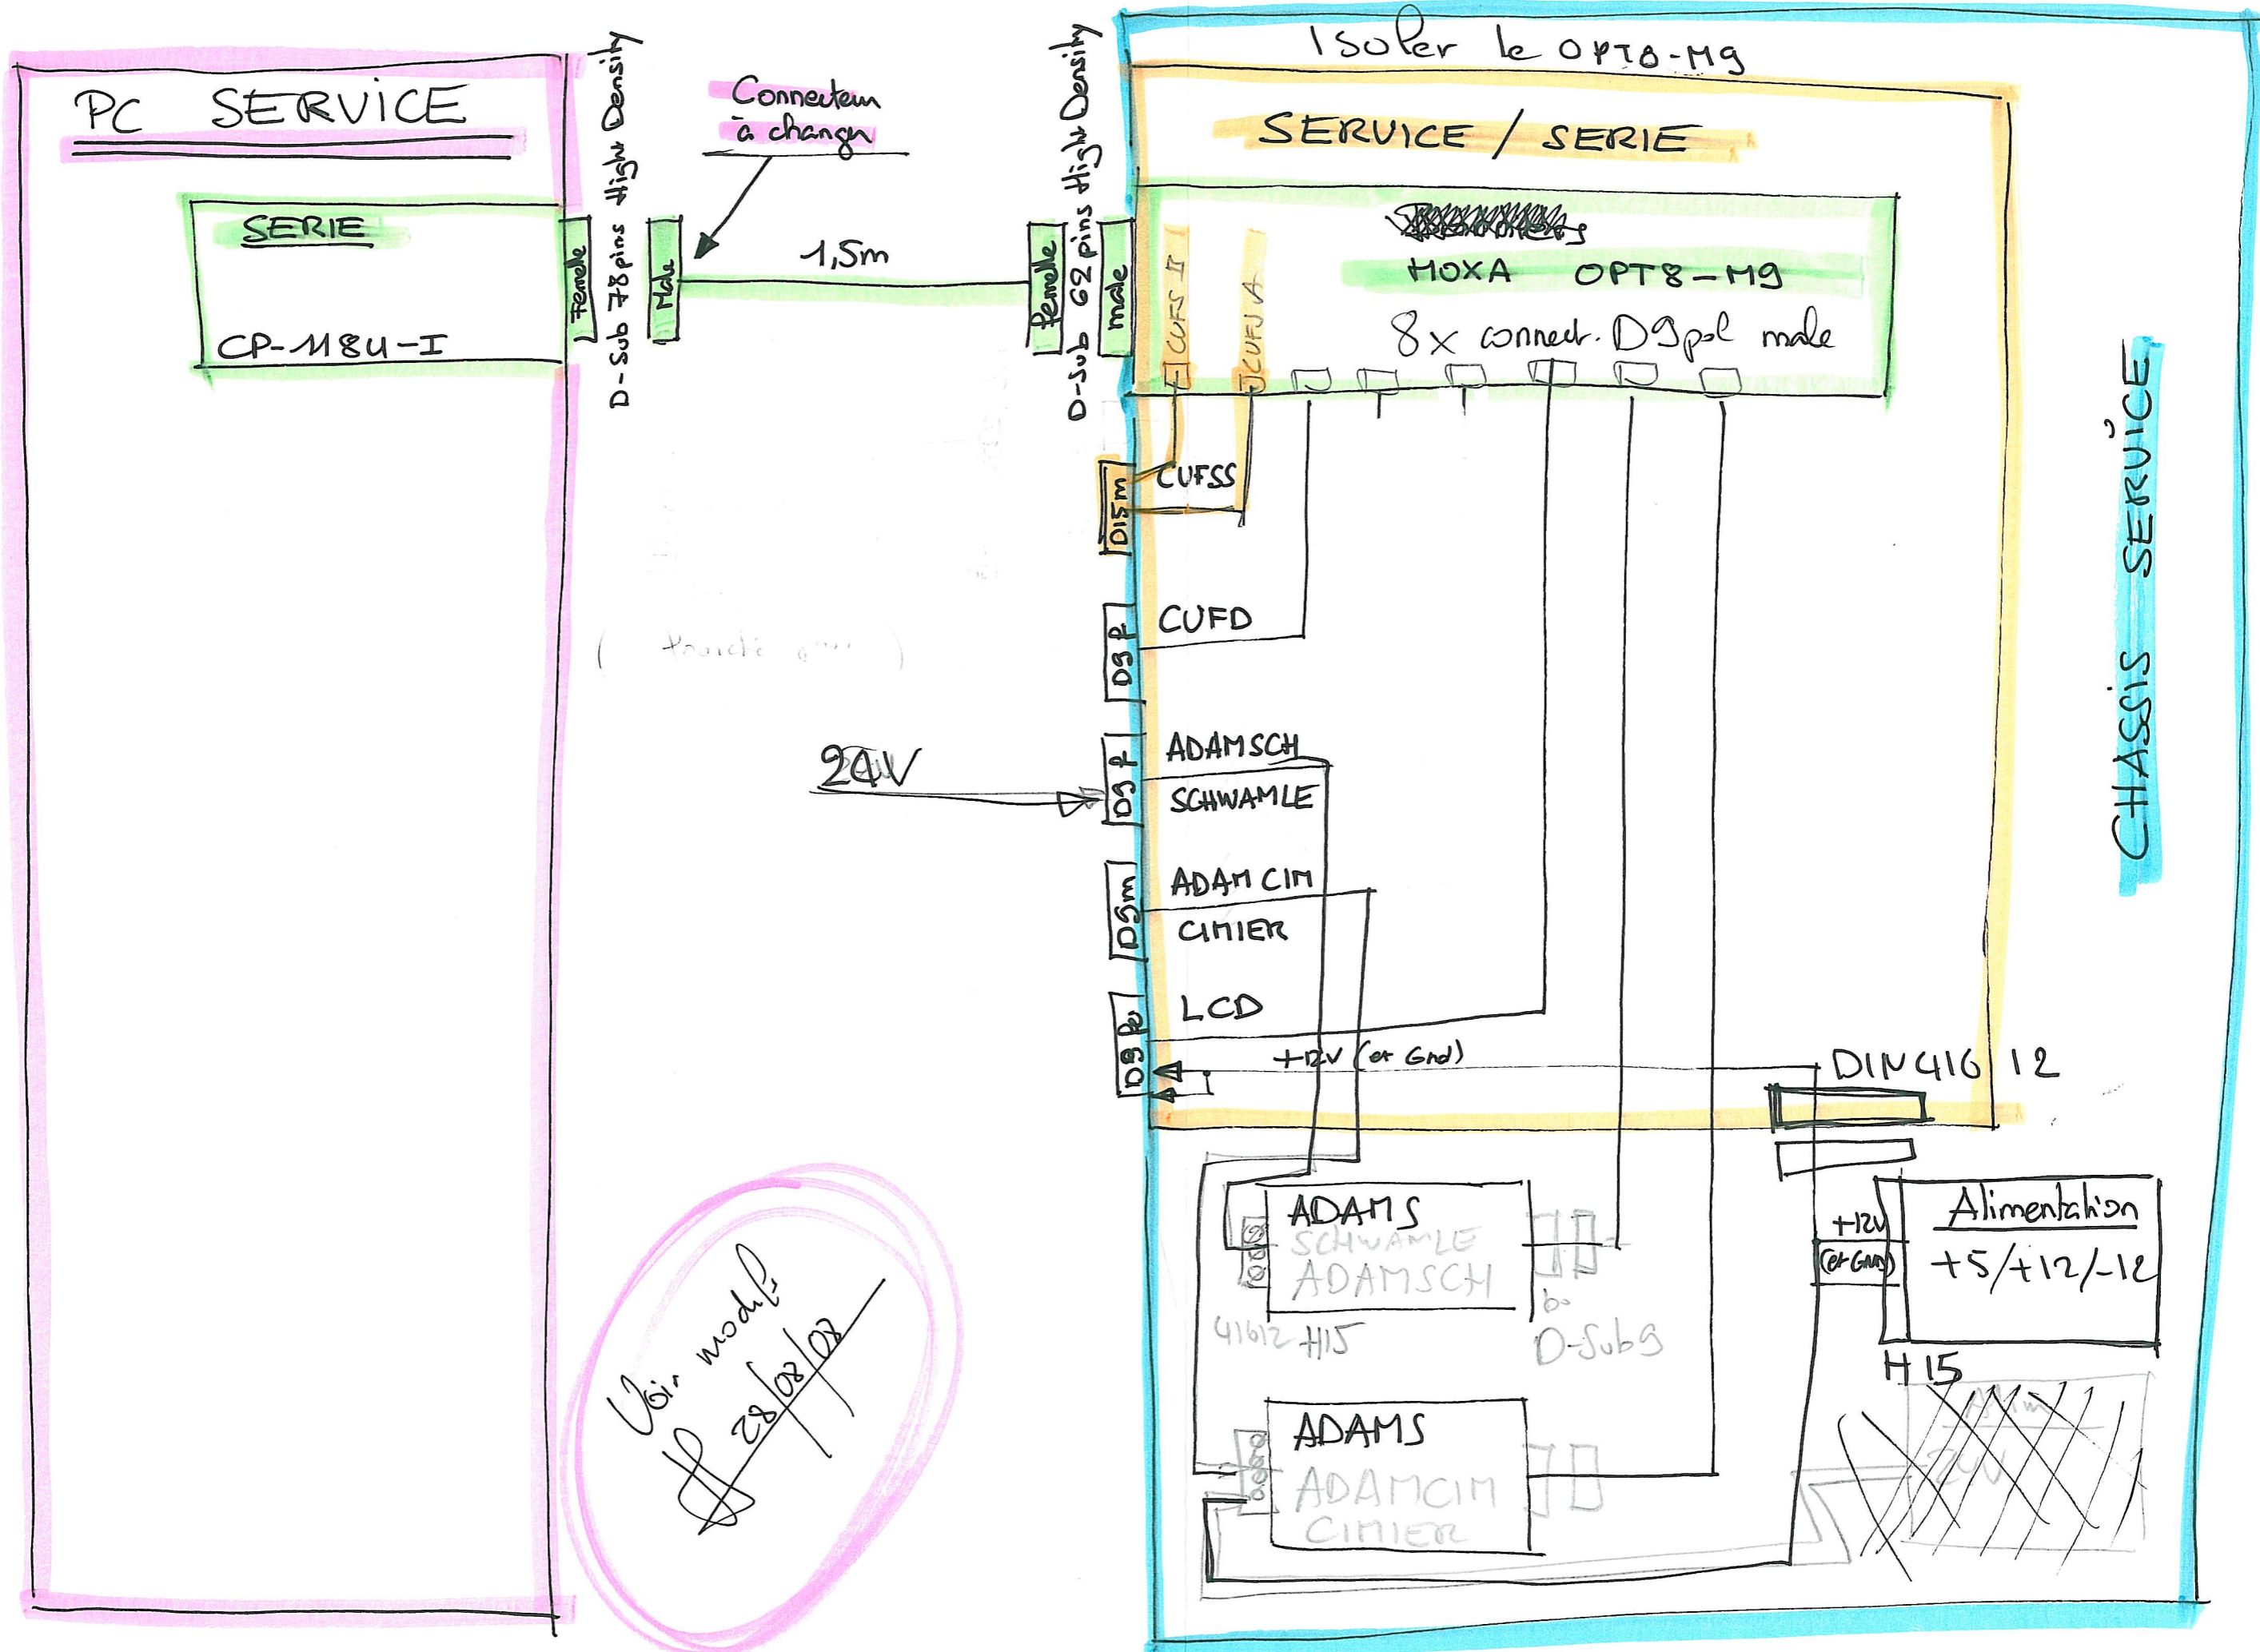 PC SERVICE
SERIE
CP-118U-I
Femelle
D-Sub 78pins Hight Density
Male
Connecteur
à changer
1,5m
femelle
D-Sub 62 pins Hight Density
male
Isoler le OPT8-M9
SERVICE / SERIE
MOXA OPT8-M9
8x connect. D9pol male
CUFS II
CUFS A
CHASSIS SERVICE
D15m
CUFSS
D9 f
CUFD
24V
D9 f
ADAMSCH
SCHWAMLE
D9m
ADAM CIM
CIMIER
D9 fe
LCD
+12V (et Gnd)
DIN 41612
ADAMS
SCHWAMLE
ADAMSCH
41612 H15
D-Sub9
+12V
(et GND)
Alimentation
+5/+12/-12
H15
Alim
24V
ADAMS
ADAMCIM
CIMIER
Voir modif.
28/08/08